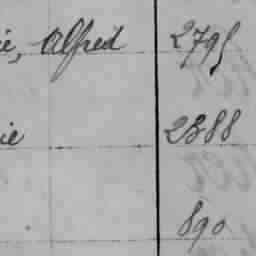 ie, Alfred 2795
ie 2388
890